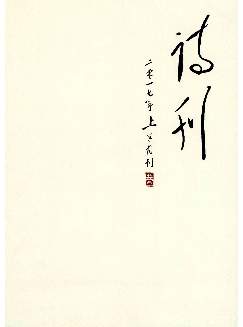 诗刊
二零一七年 上半月刊